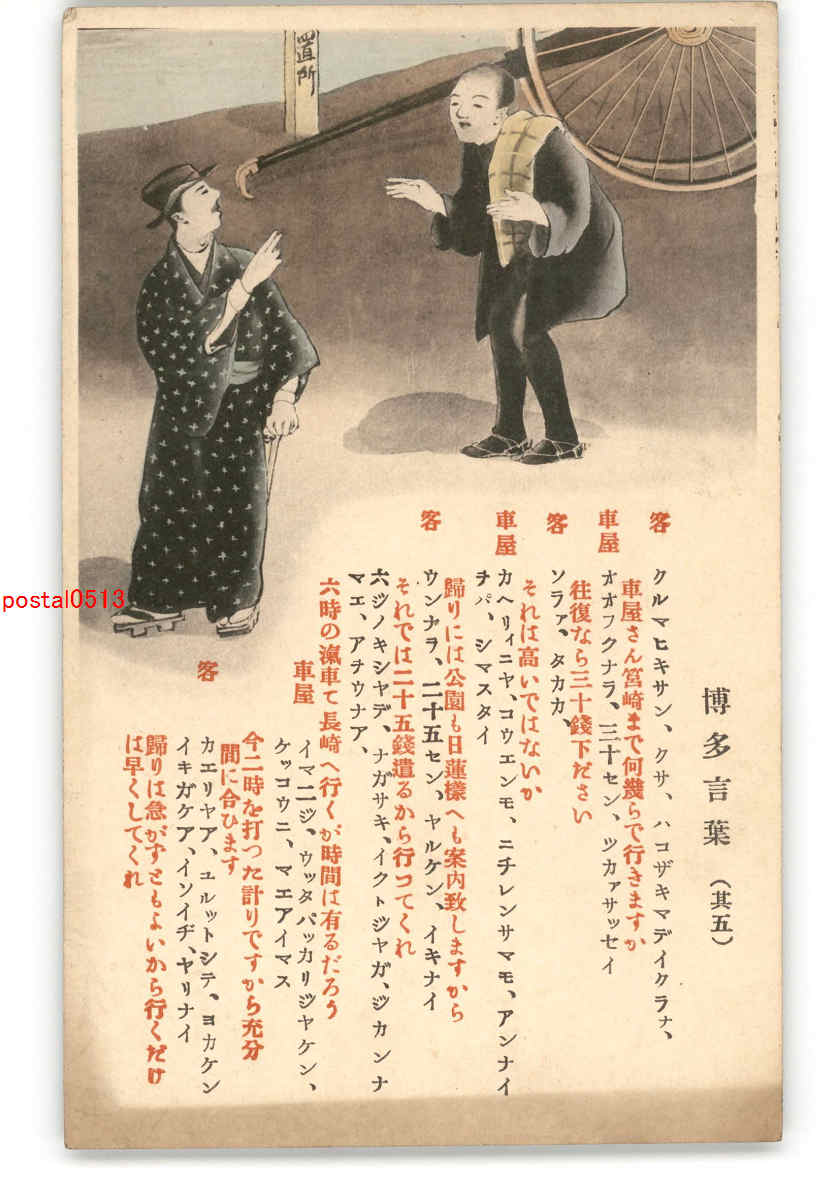 博多言葉 (其五)
客 クルマヒキサン、クサ、ハコザキマデイクラナ、
車屋さん筥崎まで何幾らで行きますか
車屋 オオフクナラ、三十セン、ツカァサッセイ
往復なら三十錢下ださい
客 ソラァ、タカカ、
それは高いではないか
車屋 カヘリィニヤ、コウエンモ、ニチレンサマモ、アンナイ
チバ、シマスタイ
歸りには公園も日蓮樣へも案内致しますから
客 ウンナラ、二十五セン、ヤルケン、イキナイ
それでは二十五錢遣るから行つてくれ
六ジノキシヤデ、ナガサキ、イクトジヤガ、ジカンナ
マエ、アチウナア、
六時の滊車て長崎へ行くが時間は有るだろう
車屋 イマ二ジ、ウッタバッカリジヤケン、
ケッコウニ、マエアイマス
今二時を打つた計りですから充分
間に合ひます
客 カエリヤア、ユルットシテ、ヨカケン
イキガケア、イソイヂ、ヤリナイ
歸りは急がずともよいから行くだけ
は早くしてくれ
置所
postal0513